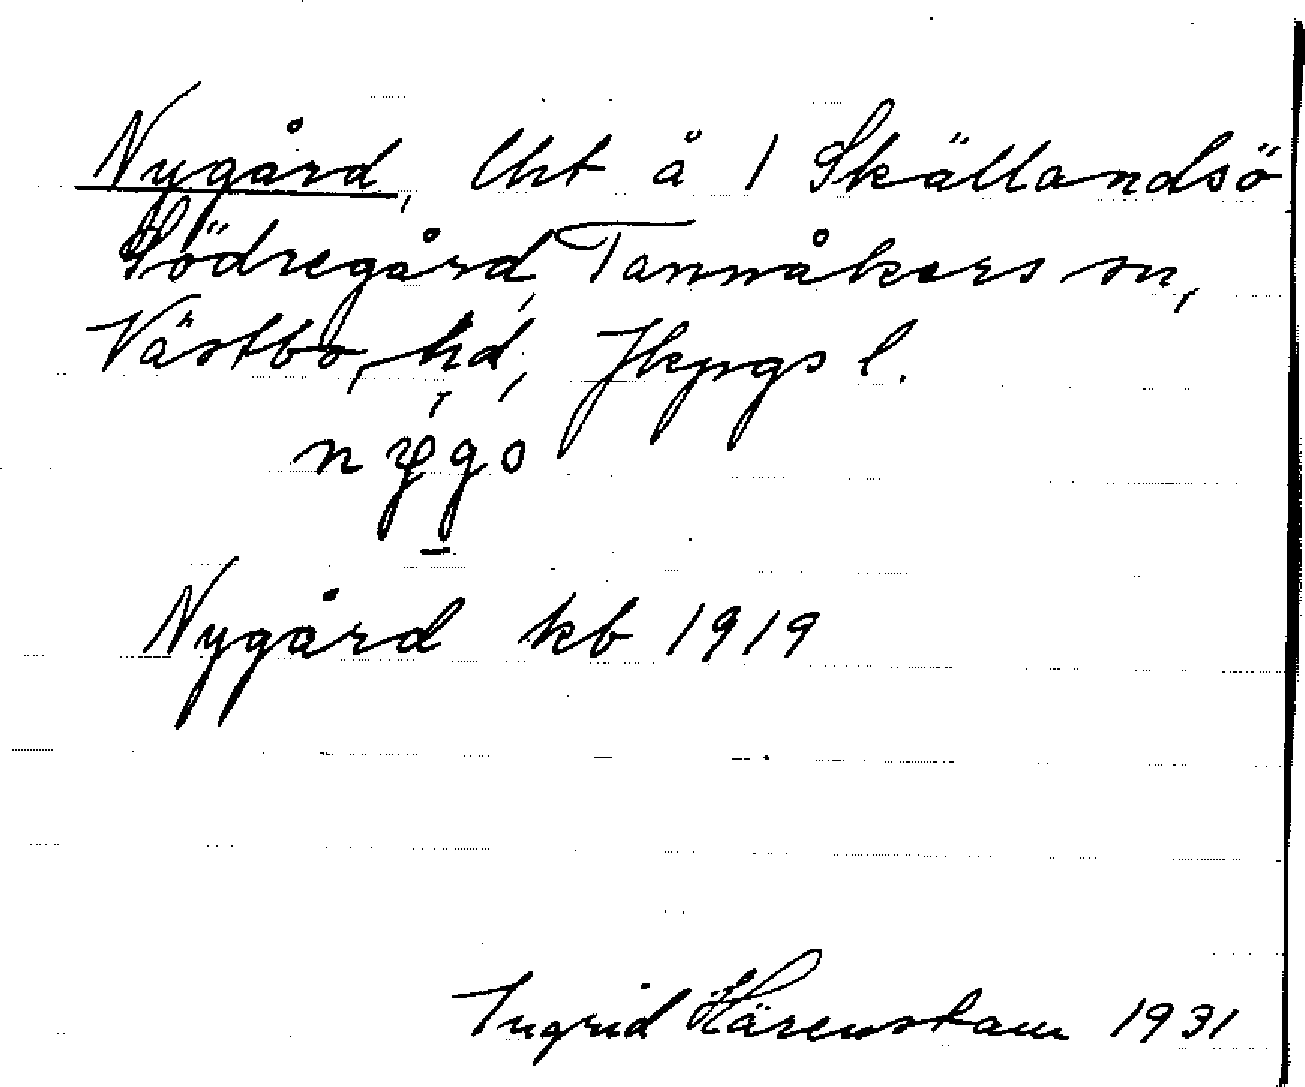 Nygård, lht å 1 Skällandsö
Södregård, Tannåkers sn,
Västbo, hd, Jkpgs l.
Nygård kb 1919
Ingrid Härenstam 1931